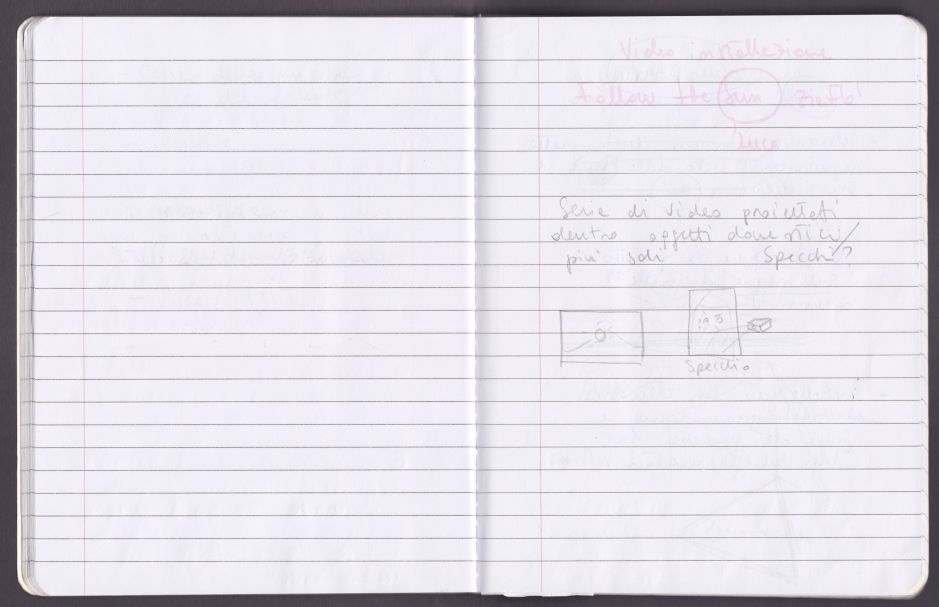 Video installazione
Follow the Sun
Luce
Serie di video proiettati
dentro oggetti domestici/
più soli Specchi?
Specchio